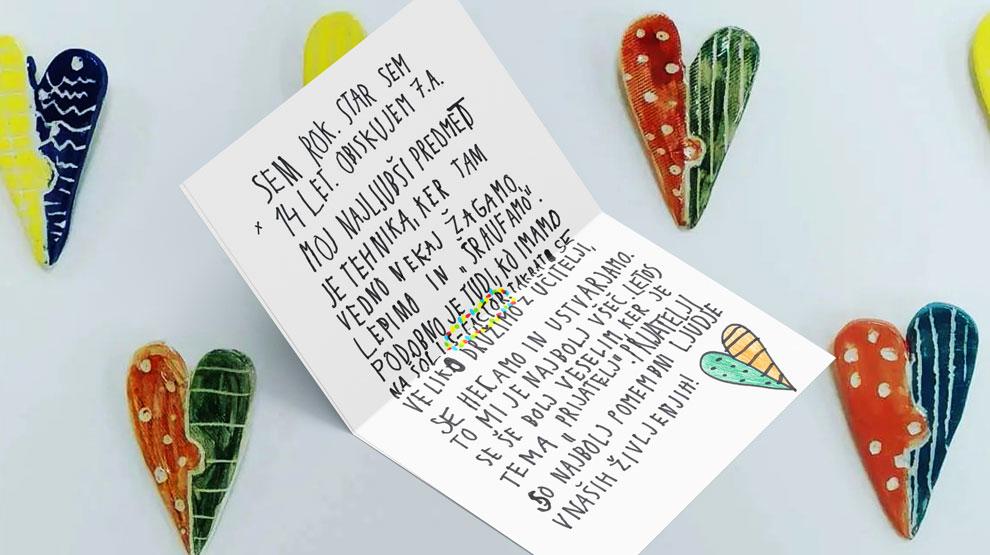 SEM ROK. STAR SEM
14 LET. OBISKUJEM 7.A.
MOJ NAJLJUBŠI PREDMET
JE TEHNIKA, KER TAM
VEDNO NEKAJ ŽAGAMO,
LEPIMO IN "ŠRAUFAMO".
PODOBNO JE TUDI, KO IMAMO
NA ŠOLI FACTOR TAKRAT SE
VELIKO DRUŽIMO Z UČITELJI,
SE HECAMO IN USTVARJAMO.
TO MI JE NAJBOLJ VŠEČ, LETOS
SE ŠE BOLJ VESELIM KER JE
TEMA "PRIJATELJI" PRIJATELJI
SO NAJBOLJ POMEMBNI LJUDJE
V NAŠIH ŽIVLJENJIH!